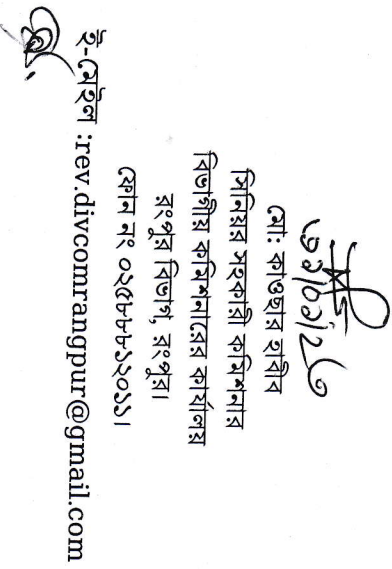 ৩১/০১/২৩
মো: কাওছার হাবীব
সিনিয়র সহকারী কমিশনার
বিভাগীয় কমিশনারের কার্যালয়
রংপুর বিভাগ, রংপুর।
ফোন নং ০২৫৮৮৮১২০১১।
ই-মেইল :rev.divcomrangpur@gmail.com